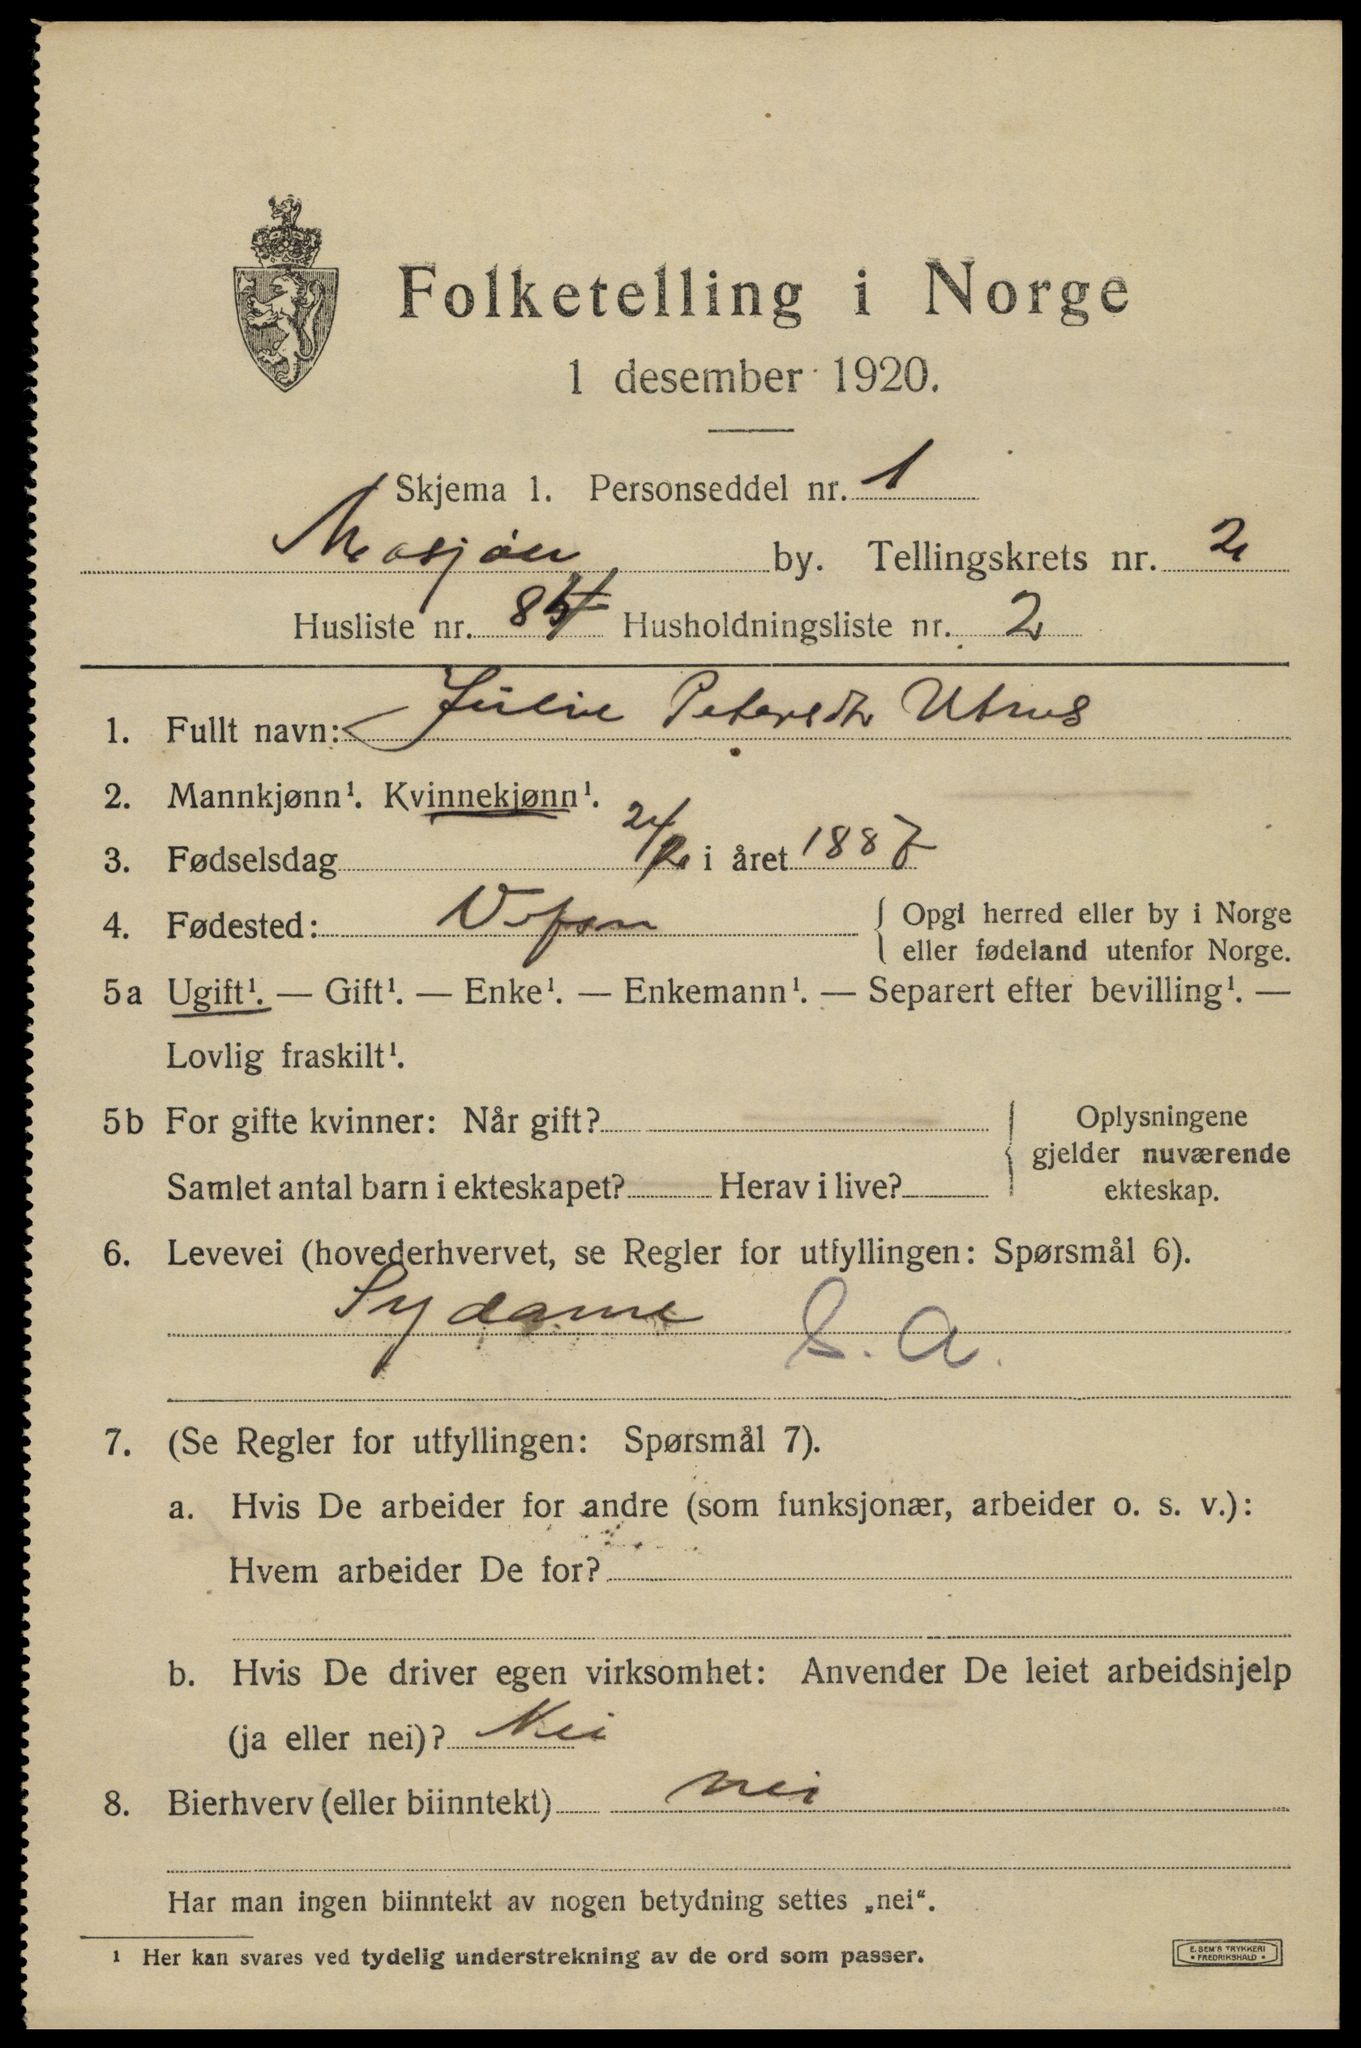 Folketelling i Norge
1 desember 1920.
Skjema 1. Personseddel nr. 1
Mosjøen by. Tellingskrets nr. 2
Husliste nr. 84 Husholdningsliste nr. 2
1. Fullt navn: Julie Petersdtr Utnes
2. Mannkjønn¹. Kvinnekjønn¹.
3. Fødselsdag 24/2 i året 1887
4. Fødested: Vefsn { Opgi herred eller by i Norge
eller fødeland utenfor Norge.
5a Ugift¹. — Gift¹. — Enke¹. — Enkemann¹. — Separert efter bevilling¹. —
Lovlig fraskilt¹.
5b For gifte kvinner: Når gift? Oplysningene
gjelder nuværende
Samlet antal barn i ekteskapet? Herav i live? ekteskap.
6. Levevei (hovederhvervet, se Regler for utfyllingen: Spørsmål 6).
Sydame S. A.
7. (Se Regler for utfyllingen: Spørsmål 7).
a. Hvis De arbeider for andre (som funksjonær, arbeider o. s. v.):
Hvem arbeider De for?
b. Hvis De driver egen virksomhet: Anvender De leiet arbeidshjelp
(ja eller nei)? Nei
8. Bierhverv (eller biinntekt) nei
Har man ingen biinntekt av nogen betydning settes „nei“.
¹ Her kan svares ved tydelig understrekning av de ord som passer.
E. SEM'S TRYKKERI
• FREDRIKSHALD •